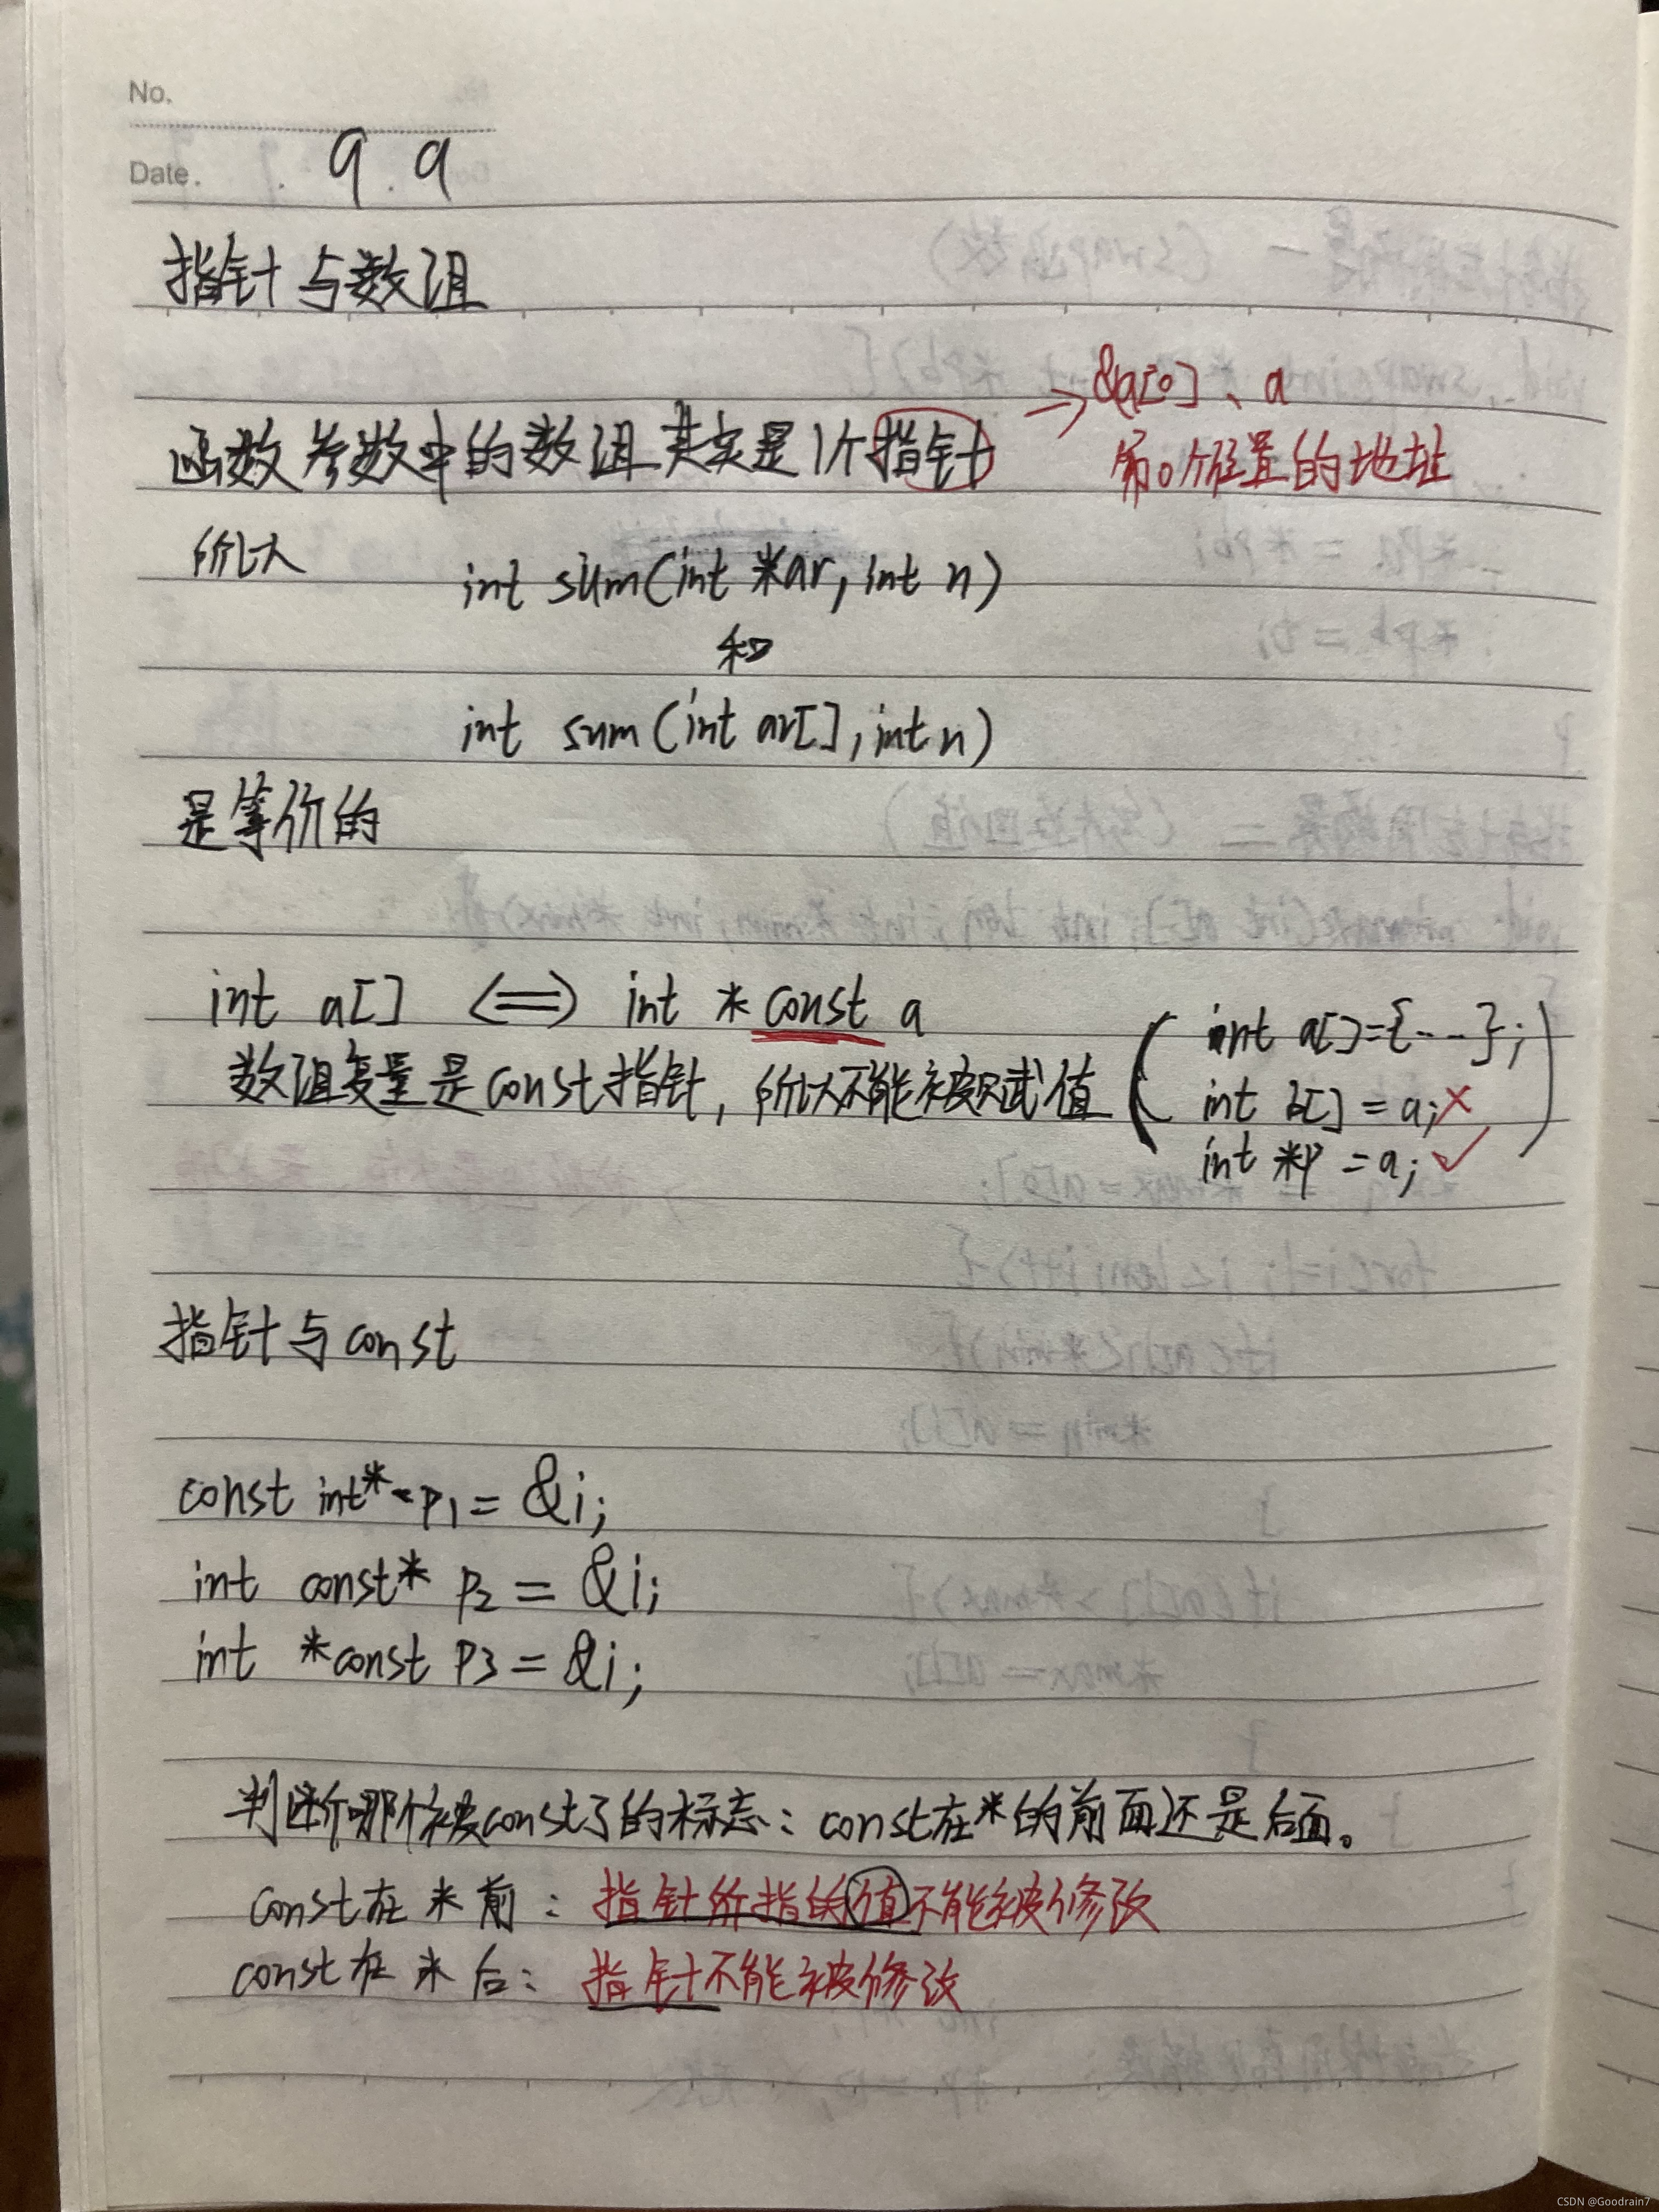 No.
Date. 9.9
指针与数组
函数参数中的数组其实是1个指针 → &a[0]、a
第0个位置的地址
所以 int sum(int *ar, int n)
和
int sum(int ar[], int n)
是等价的
int a[] <=> int * const a
数组变量是const指针，所以不能被赋值
int a[]={---};
int b[] = a; ×
int *p = a; ✓
指针与const
const int* p1 = &i;
int const* p2 = &i;
int *const p3 = &i;
判断哪个被const了的标志：const在*的前面还是后面。
const在*前：指针所指的值不能被修改
const在*后：指针不能被修改
CSDN @Goodrain7